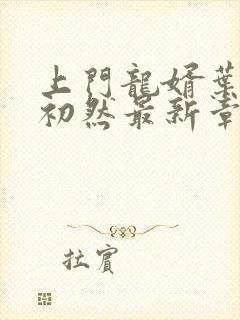 上門龍婿葉
初然最新章
拉賓